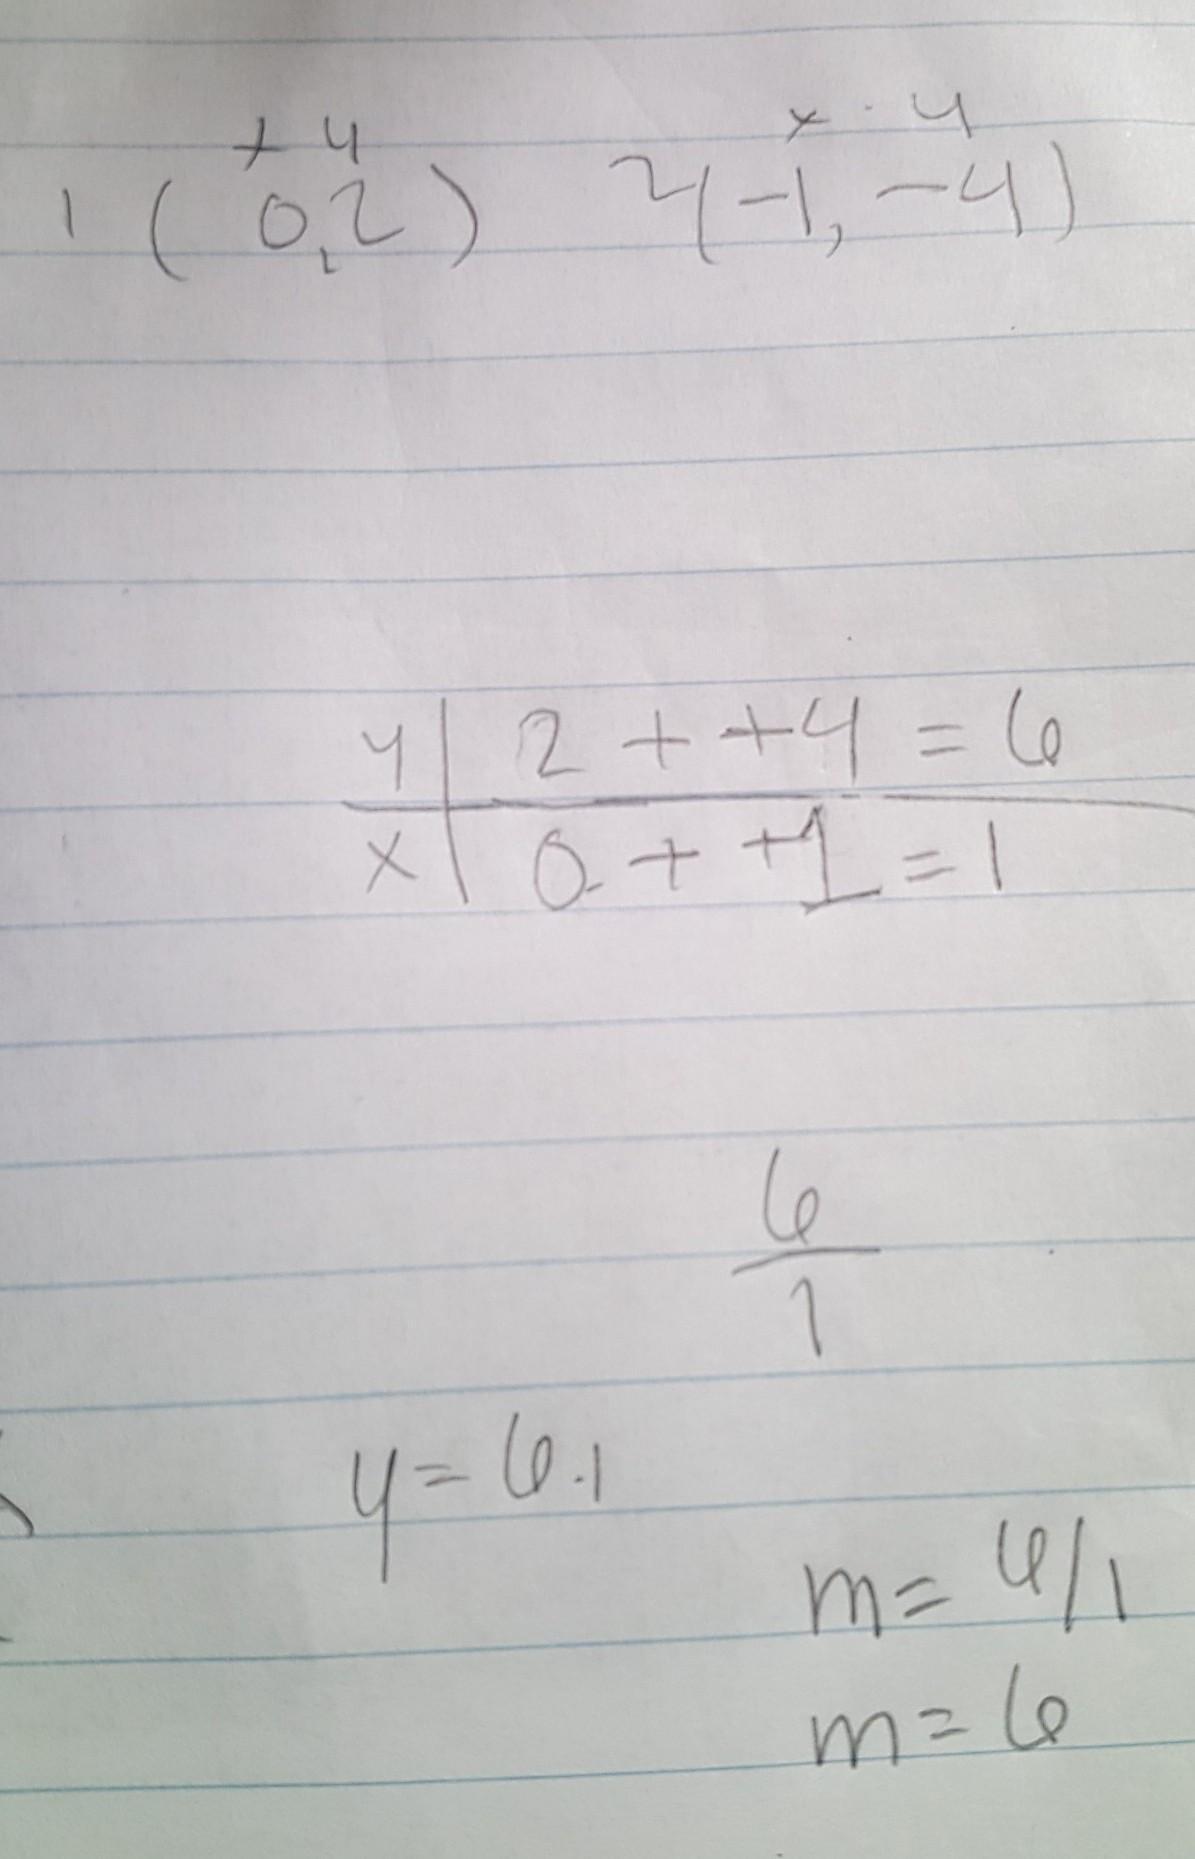 x y x y
1 ( 0,2 ) 2(-1, -4)
y | 2 + +4 = 6
x | 0 + +1 = 1
6
1
y = 6.1
m = 6/1
m = 6